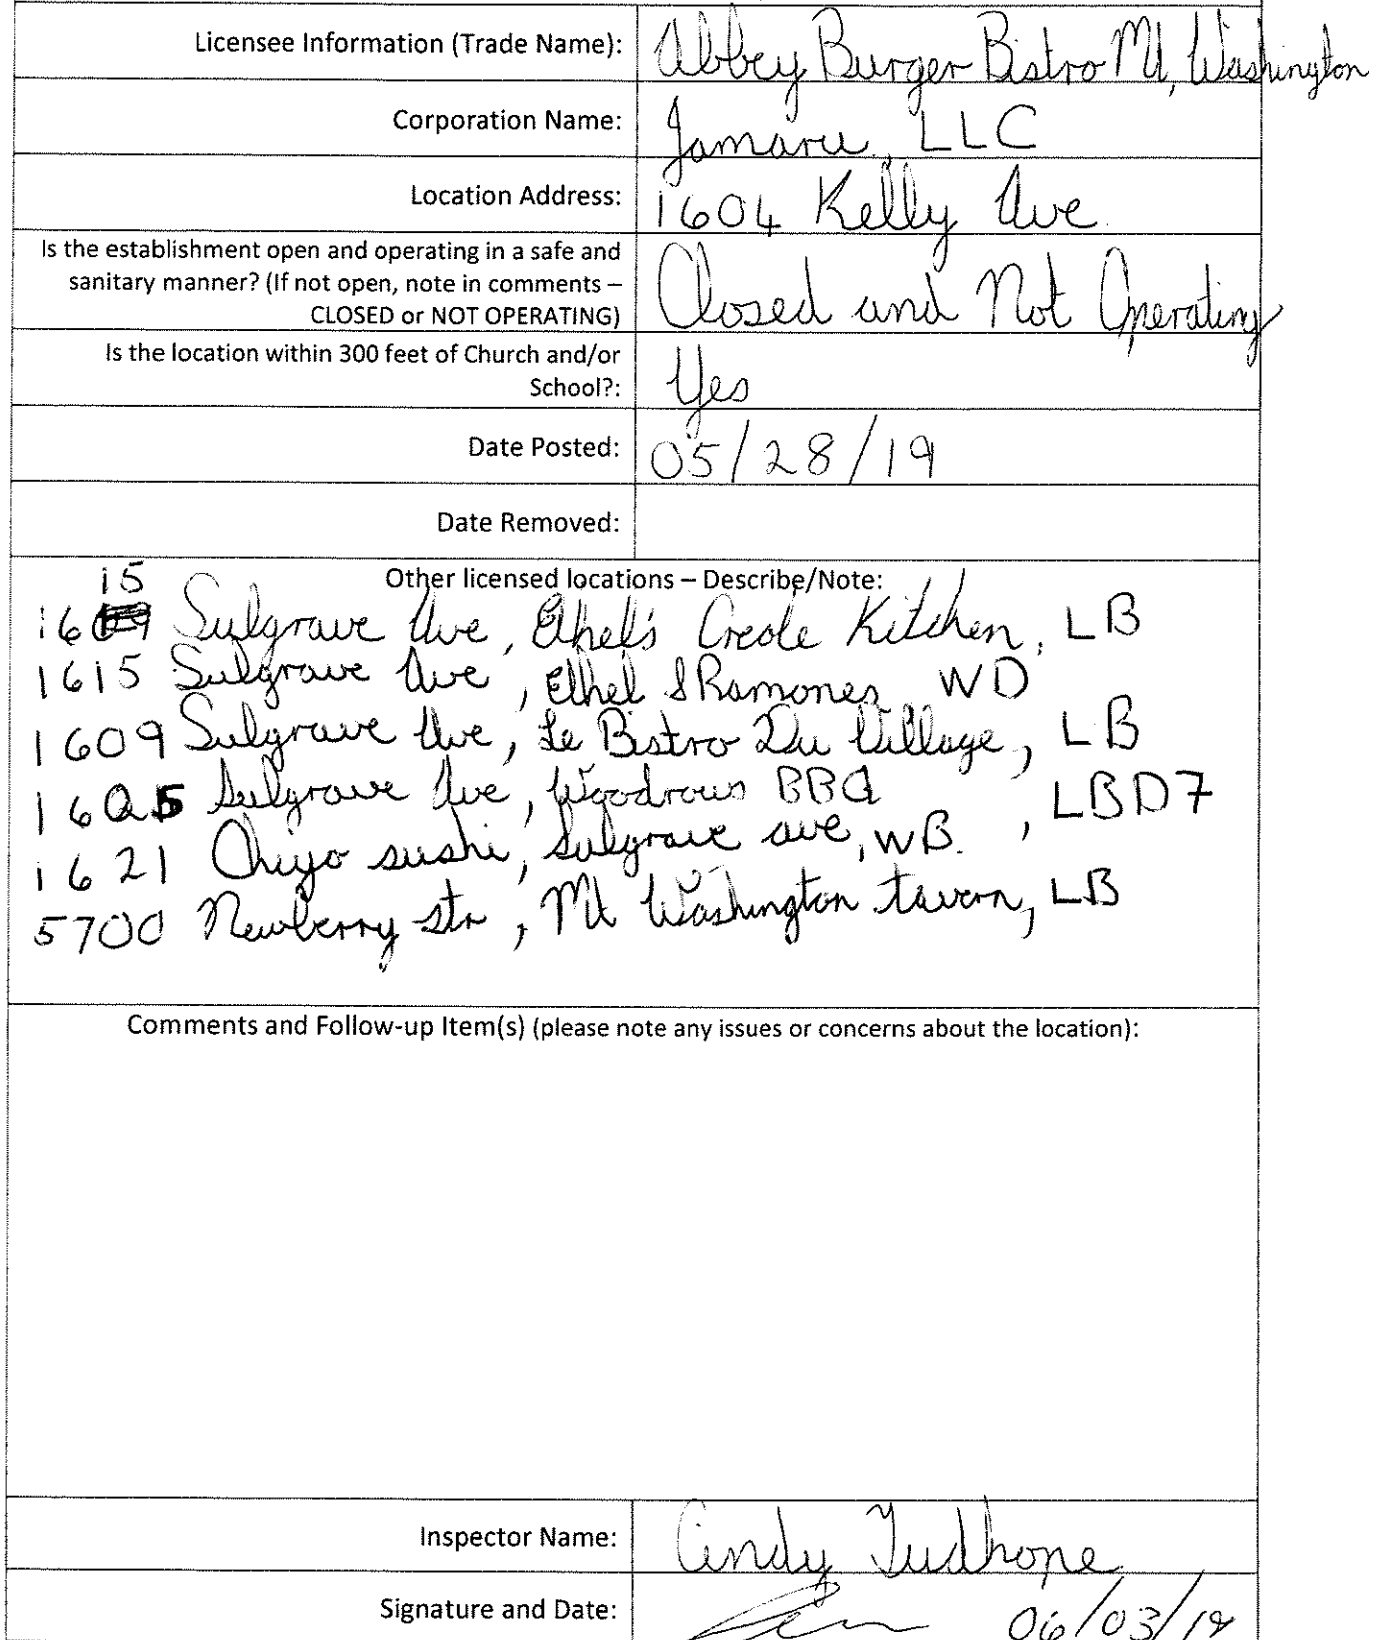 Licensee Information (Trade Name): Abbey Burger Bistro Mt, Washington
Corporation Name: Jamaru, LLC
Location Address: 1604 Kelly Ave
Is the establishment open and operating in a safe and
sanitary manner? (If not open, note in comments –
CLOSED or NOT OPERATING)
Closed and Not Operating
Is the location within 300 feet of Church and/or
School?:
Yes
Date Posted: 05/28/19
Date Removed:
Other licensed locations – Describe/Note:
1615 Sulgrave Ave, Ethel's Creole Kitchen, LB
1615 Sulgrave Ave, Ethel & Ramones WD
1609 Sulgrave Ave, Le Bistro Du Village, LB
Sulgrave Ave, Woodrows BBQ, LBD7
1621 Chiyo sushi, Sulgrave ave, WB.
5700 Newberry str, Mt Washington tavern, LB
Comments and Follow-up Item(s) (please note any issues or concerns about the location):
Inspector Name: Cindy Tudhope
Signature and Date: 06/03/19